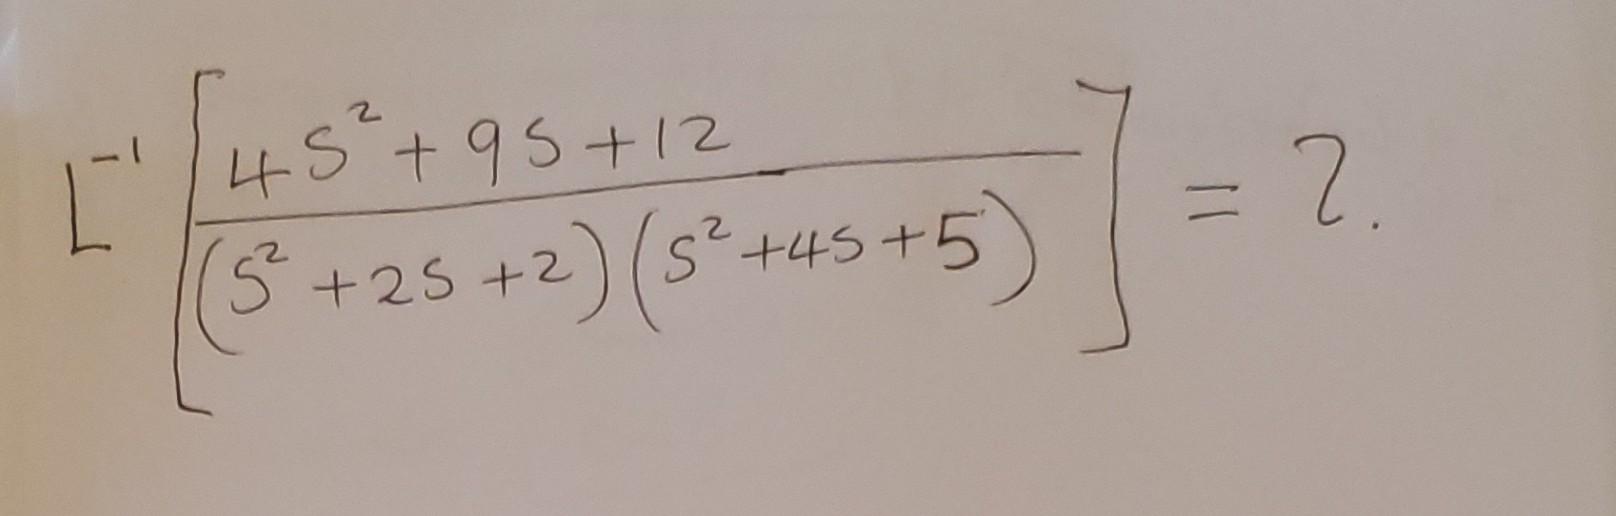 L⁻¹ [ (4s² + 9s + 12) / ((s² + 2s + 2)(s² + 4s + 5)) ] = ?.